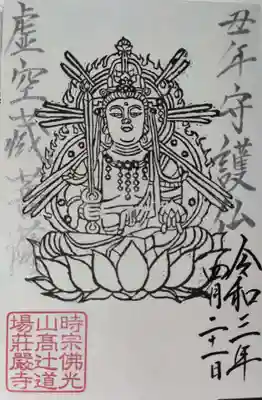 丑年守護仏
虚空蔵菩薩
令和三年
月二十一日
時宗佛光
山髙辻道
場莊嚴寺